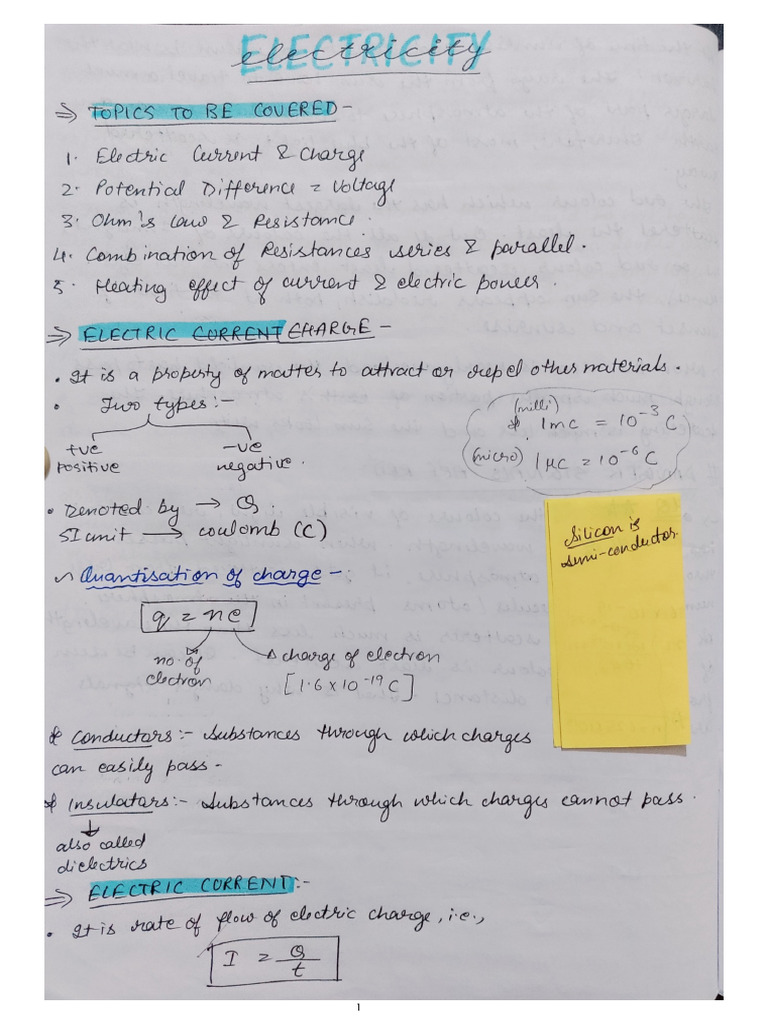 ELECTRICITY
electricity
⇒ TOPICS TO BE COVERED -
1. Electric Current & Charge
2. Potential Difference = Voltage
3. Ohm's law & Resistance.
4. Combination of Resistances series & parallel.
5. Heating effect of current & electric power.
⇒ ELECTRIC CURRENT CHARGE -
• It is a property of matter to attract or repel other materials.
• Two types :-
+ve
positive
-ve
negative.
(milli)
1mC = 10⁻³ C
(micro) 1μC = 10⁻⁶ C
• Denoted by → Q
SI unit → coulomb (C)
Silicon is
semi-conductor.
Quantisation of charge -:
q = ne
no. of
electron
charge of electron
[1.6 × 10⁻¹⁹ C]
Conductors :- Substances through which charges
can easily pass -
Insulators :- Substances through which charges cannot pass.
also called
dielectrics
⇒ ELECTRIC CURRENT :-
• It is rate of flow of electric charge, i.e.,
I = Q/t
1